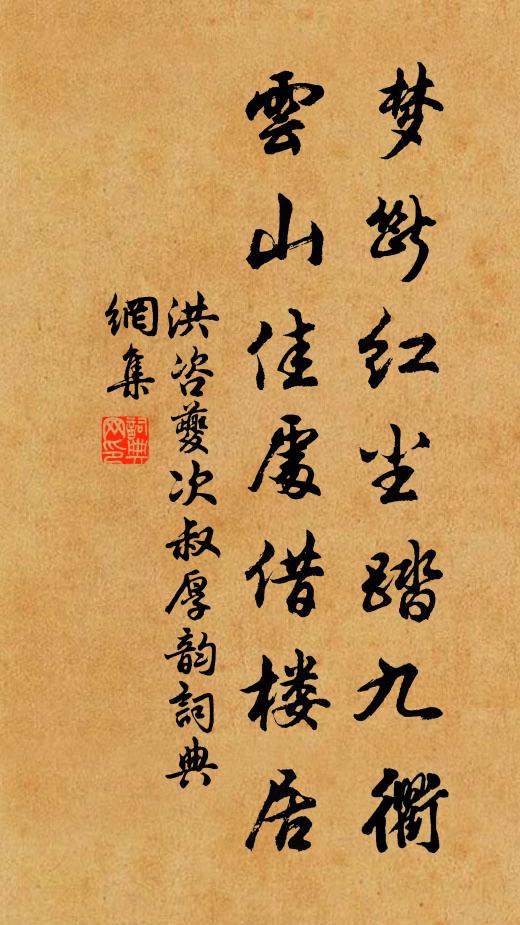 梦断红尘踏九衢
雲山佳處借楼居
洪咨夔次叔厚韵詞典
網集
詞典
网印